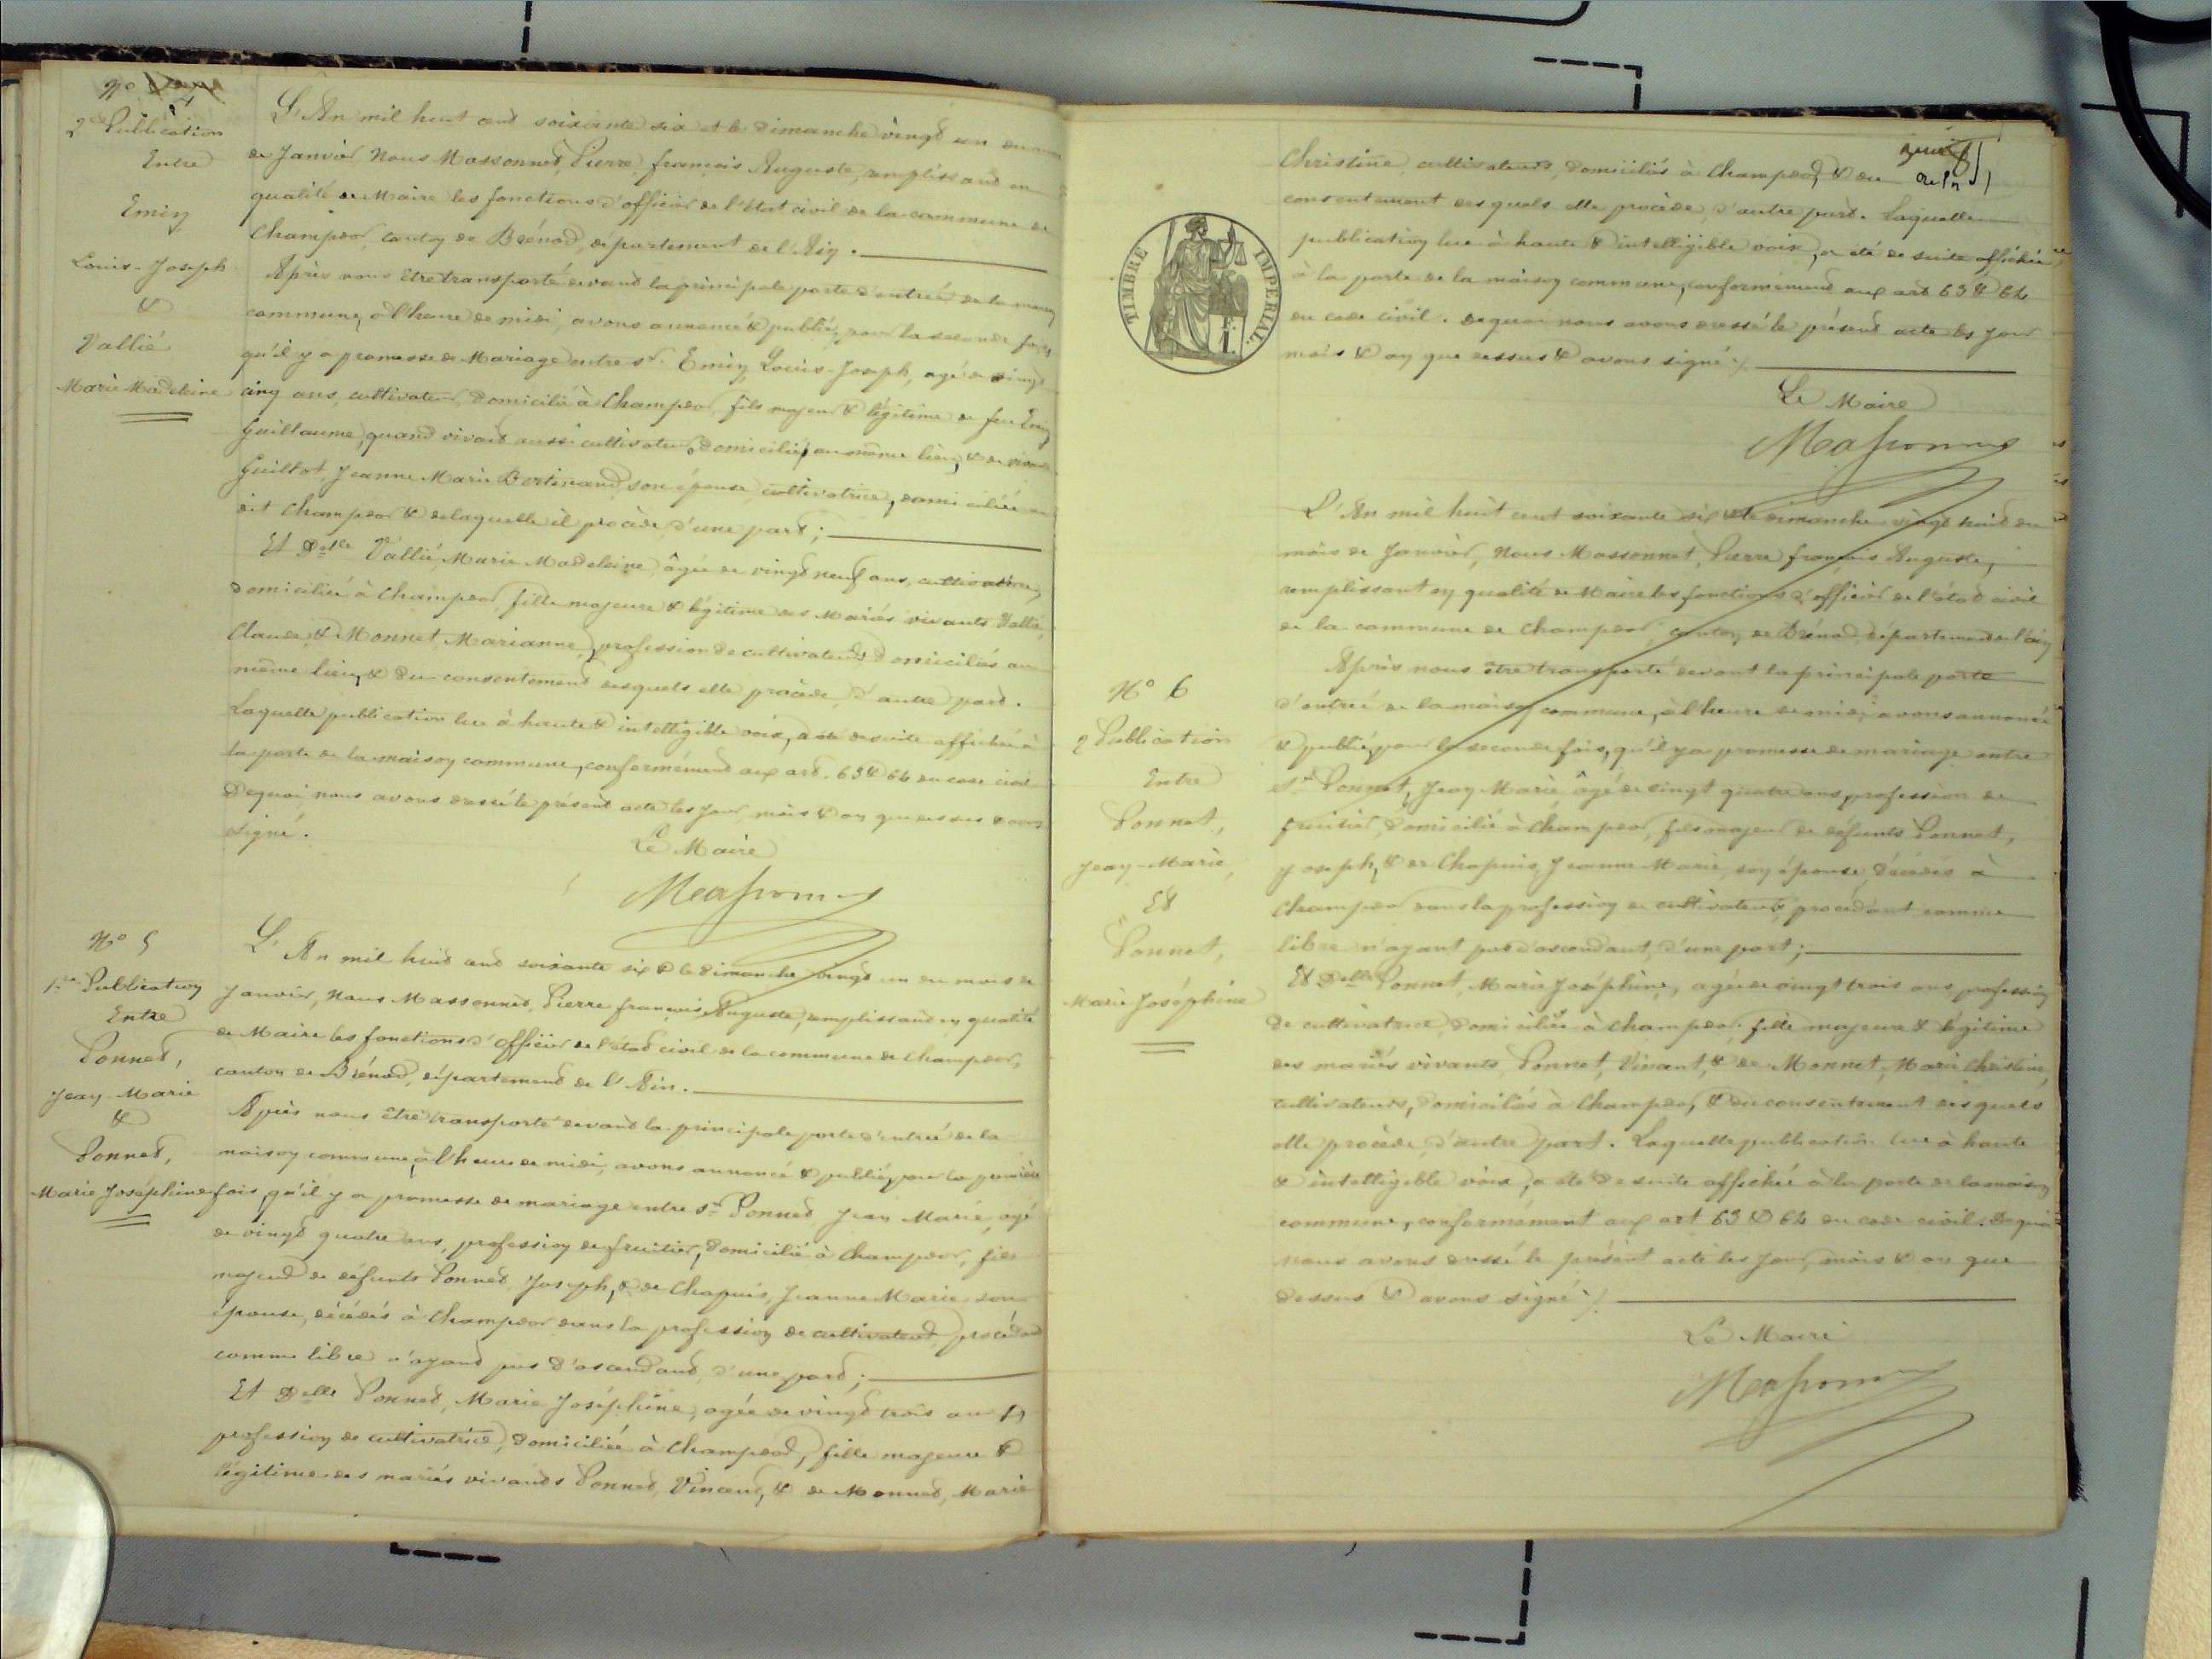 N°
2de Publication
Entre
Emin
Louis-Joseph
&
Vallié
Marie Madeleine
L'An mil huit cent soixante six et le dimanche vingt un du mois
de Janvier Nous Massonnet, Pierre françois Auguste, remplissant en
qualité de Maire les fonctions d'officier de l'état civil de la commune de
Champdor, canton de Brénod, département de l'Ain.
Après nous être transporté devant la principale porte d'entrée de la maison
commune, à l'heure de midi, avons annoncé & publié, pour la seconde fois,
qu'il y a promesse de Mariage entre sr. Emin Louis-Joseph, agé de vingt
cinq ans, cultivateur, domicilié à Champdor, fils majeur & légitime de feu Emin
Guillaume, quand vivait aussi cultivateur, domicilié au même lieu, & de vivante
Guillot, Jeanne Marie Bertinand, son épouse cultivatrice, domiciliée au
dit Champdor & de laquelle il procède, d'une part;
Et Delle Vallié Marie Madeleine, âgée de vingt neuf ans, cultivatrice,
domiciliée à Champdor, fille majeure & légitime des Mariés vivants Vallié,
Claude, & Monnet, Marianne, profession de cultivateurs, domiciliés au
même lieu, & du consentement desquels elle procède, d'autre part.
Laquelle publication lue à haute & intelligible voix, a été de suite affichée à
la porte de la maison commune, conformément aux art. 63 & 64 du code civil
Dequoi nous avons dressé le présent acte les jour, mois & an que dessus & avons
signé.
Le Maire
Massonnet
N° 5
1re Publication
Entre
Ponnet,
Jean-Marie
&
Ponnet,
Marie Joséphine
L'An mil huit cent soixante six & le dimanche vingt un du mois de
Janvier, Nous Massonnet, Pierre françois Auguste, remplissant en qualité
de Maire les fonctions d'officier de l'état civil de la commune de Champdor,
canton de Brénod, département de l'Ain.
Après nous être transporté devant la principale porte d'entrée de la
maison commune, à l'heure de midi, avons annoncé & publié, pour la première
fois, qu'il y a promesse de mariage entre sr Ponnet Jean Marie, agé
de vingt quatre ans, profession de fruitier, domicilié à Champdor, fils
majeur de défunts Ponnet Joseph, & de Chapuis, Jeanne Marie son
épouse, décédés à Champdor dans la profession de cultivateurs, procédant
comme libre n'ayant pas d'ascendant, d'une part;
Et Delle Ponnet, Marie Joséphine, agée de vingt trois ans,
profession de cultivatrice, domiciliée à Champdor, fille majeure &
légitime des mariés vivants Ponnet, Vincent, & de Monnet, Marie
Christine, cultivateurs, domiciliés à Champdor, & du
consentement desquels elle procède, d'autre part. Laquelle
publication lue à haute & intelligible voix, a été de suite affichée
à la porte de la maison commune, conformément aux art 63 & 64
du code civil. Dequoi nous avons dressé le présent acte les jour
mois & an que dessus & avons signé ./.
Le Maire
Massonnet
TIMBRE IMPERIAL
1 F.
N° 6
2 Publication
Entre
Ponnet,
Jean-Marie,
Et
Ponnet,
Marie Joséphine
L'An mil huit cent soixante six & le dimanche vingt huit du
mois de Janvier, Nous Massonnet, Pierre françois Auguste,
remplissant en qualité de Maire les fonctions d'officier de l'état civil
de la commune de Champdor, canton de Brénod, département de l'ain
Après nous être transporté devant la principale porte
d'entrée de la maison commune, à l'heure de midi, avons annoncé
& publié, pour la seconde fois, qu'il y a promesse de mariage entre
sr Ponnet, Jean Marie âgé de vingt quatre ans, profession de
fruitier, domicilié à Champdor, fils majeur de défunts Ponnet,
Joseph, & de Chapuis, Jeanne Marie, son épouse, décédés à
Champdor dans la profession de cultivateurs, procédant comme
libre n'ayant pas d'ascendant, d'une part;
Et Delle Ponnet, Marie Joséphine, agée de vingt trois ans, profession
de cultivatrice, domiciliée à Champdor, fille majeure & légitime
des mariés vivants, Ponnet, Vincent, & de Monnet, Marie Christine,
cultivateurs, domiciliés à Champdor, & du consentement desquels
elle procède, d'autre part. Laquelle publication lue à haute
& intelligible voix, a été de suite affichée à la porte de la maison
commune, conformément aux art 63 & 64 du code civil. Dequoi
nous avons dressé le présent acte les jour, mois & an que
dessus & avons signé ./.
Le Maire
Massonnet